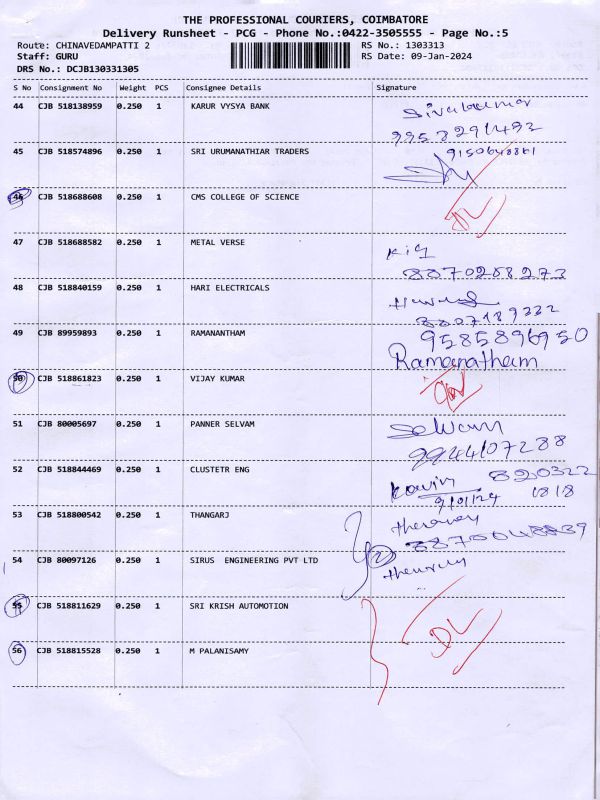 THE PROFESSIONAL COURIERS, COIMBATORE
Delivery Runsheet - PCG - Phone No.:0422-3505555 - Page No.:5
Route: CHINAVEDAMPATTI 2 RS No.: 1303313
Staff: GURU RS Date: 09-Jan-2024
DRS No.: DCJB130331305
S No Consignment No Weight PCS Consignee Details Signature
44 CJB 518138959 0.250 1 KARUR VYSYA BANK Sivakumar
9953291492
45 CJB 518574896 0.250 1 SRI URUMANATHIAR TRADERS 9150648861
46 CJB 518688608 0.250 1 CMS COLLEGE OF SCIENCE DL
47 CJB 518688582 0.250 1 METAL VERSE
8870288273
48 CJB 518840159 0.250 1 HARI ELECTRICALS
8807189332
49 CJB 89959893 0.250 1 RAMANANTHAM 9585896950
Ramanatham
50 CJB 518861823 0.250 1 VIJAY KUMAR
51 CJB 80005697 0.250 1 PANNER SELVAM Selvam
9944107288
52 CJB 518844469 0.250 1 CLUSTETR ENG Kavin 820322
9/01/24 1818
53 CJB 518800542 0.250 1 THANGARJ
54 CJB 80097126 0.250 1 SIRUS ENGINEERING PVT LTD 2
55 CJB 518811629 0.250 1 SRI KRISH AUTOMOTION DL
56 CJB 518815528 0.250 1 M PALANISAMY